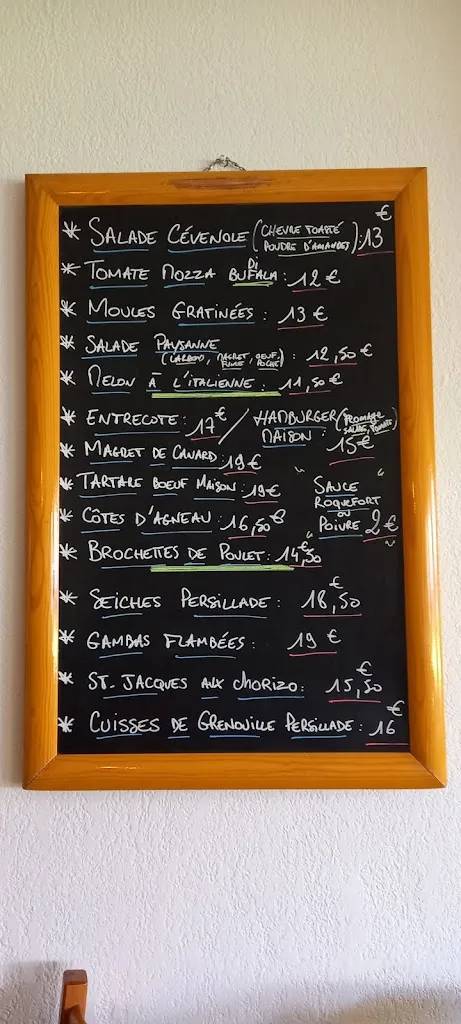 * SALADE CÉVENOLE (CHEVRE TOASTÉ POUDRE D'AMANDES): 13 €
* TOMATE MOZZA DI BUFALA: 12 €
* MOULES GRATINÉES: 13 €
* SALADE PAYSANNE (LARDON, MAGRET FUMÉ, OEUF POCHÉ): 12,50 €
* MELON À L'ITALIENNE: 11,50 €
* ENTRECOTE: 17 € / HAMBURGER MAISON: (FROMAGE SALADE, TOMATE) 15 €
* MAGRET DE CANARD: 19 €
* TARTARE BOEUF MAISON: 19 €
* CÔTES D'AGNEAU: 16,50 €
* BROCHETTES DE POULET: 14,50 €
" SAUCE "
ROQUEFORT
OU
" POIVRE 2 € "
* SEICHES PERSILLADE: 18,50 €
* GAMBAS FLAMBÉES: 19 €
* ST. JACQUES AUX CHORIZO: 15,50 €
* CUISSES DE GRENOUILLE PERSILLADE: 16 €